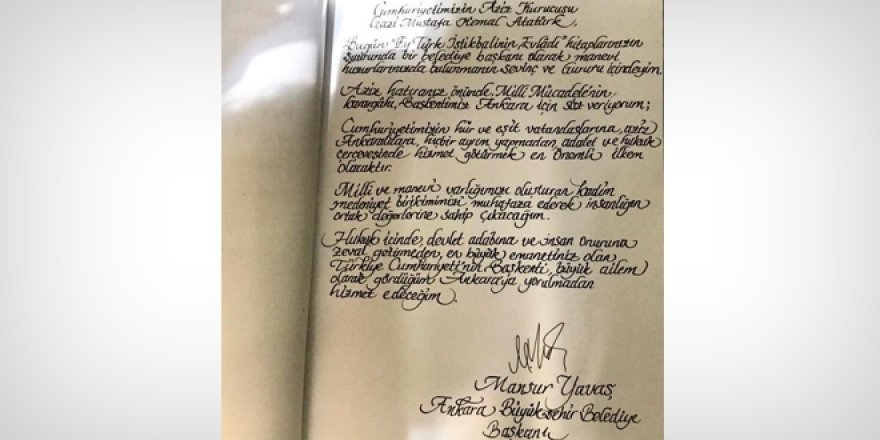 Cumhuriyetimizin Aziz Kurucusu
Gazi Mustafa Kemal Atatürk,
Bugün "Ey Türk İstikbalinin Evladı" hitaplarınızın
şuurunda bir belediye başkanı olarak manevi
huzurlarınızda bulunmanın sevinç ve Gururu içindeyim.
Aziz hatıranız önünde, Milli Mücadele'nin
karargâhı, Başkentimiz Ankara için söz veriyorum;
Cumhuriyetimizin hür ve eşit vatandaşlarına, aziz
Ankaralılara, hiçbir ayrım yapmadan, adalet ve hukuk
çerçevesinde hizmet götürmek en önemli ilkem
olacaktır.
Milli ve manevi varlığımızı oluşturan kadim
medeniyet birikimimizi muhafaza ederek insanlığın
ortak değerlerine sahip çıkacağım.
Hukuk içinde, devlet adabına ve insan onuruna
zeval getirmeden, en büyük emanetiniz olan
Türkiye Cumhuriyeti'nin Başkenti, büyük ailem
olarak gördüğüm Ankara'ya yorulmadan
hizmet edeceğim.
Mansur Yavaş
Ankara Büyükşehir Belediye
Başkanı